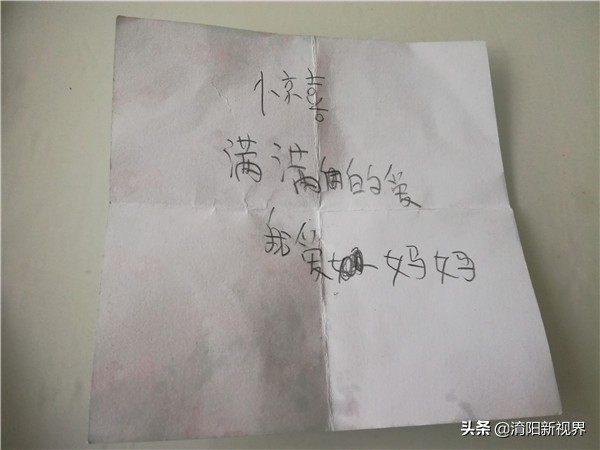 惊喜
满满的爱
我爱妈妈
头条 @淯阳新视界